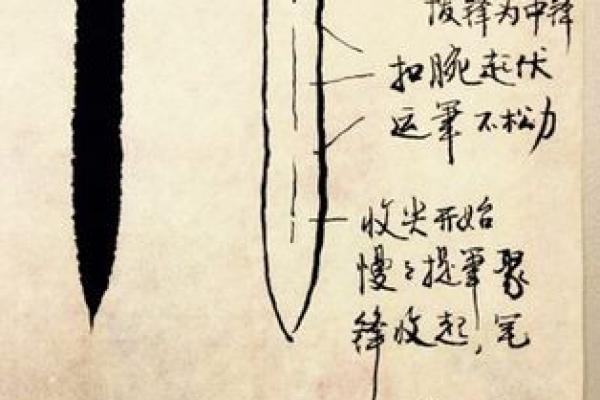 扳锋为中锋
扣腕起伏
运笔不松力
收尖开始
慢々提笔聚
锋收起，笔